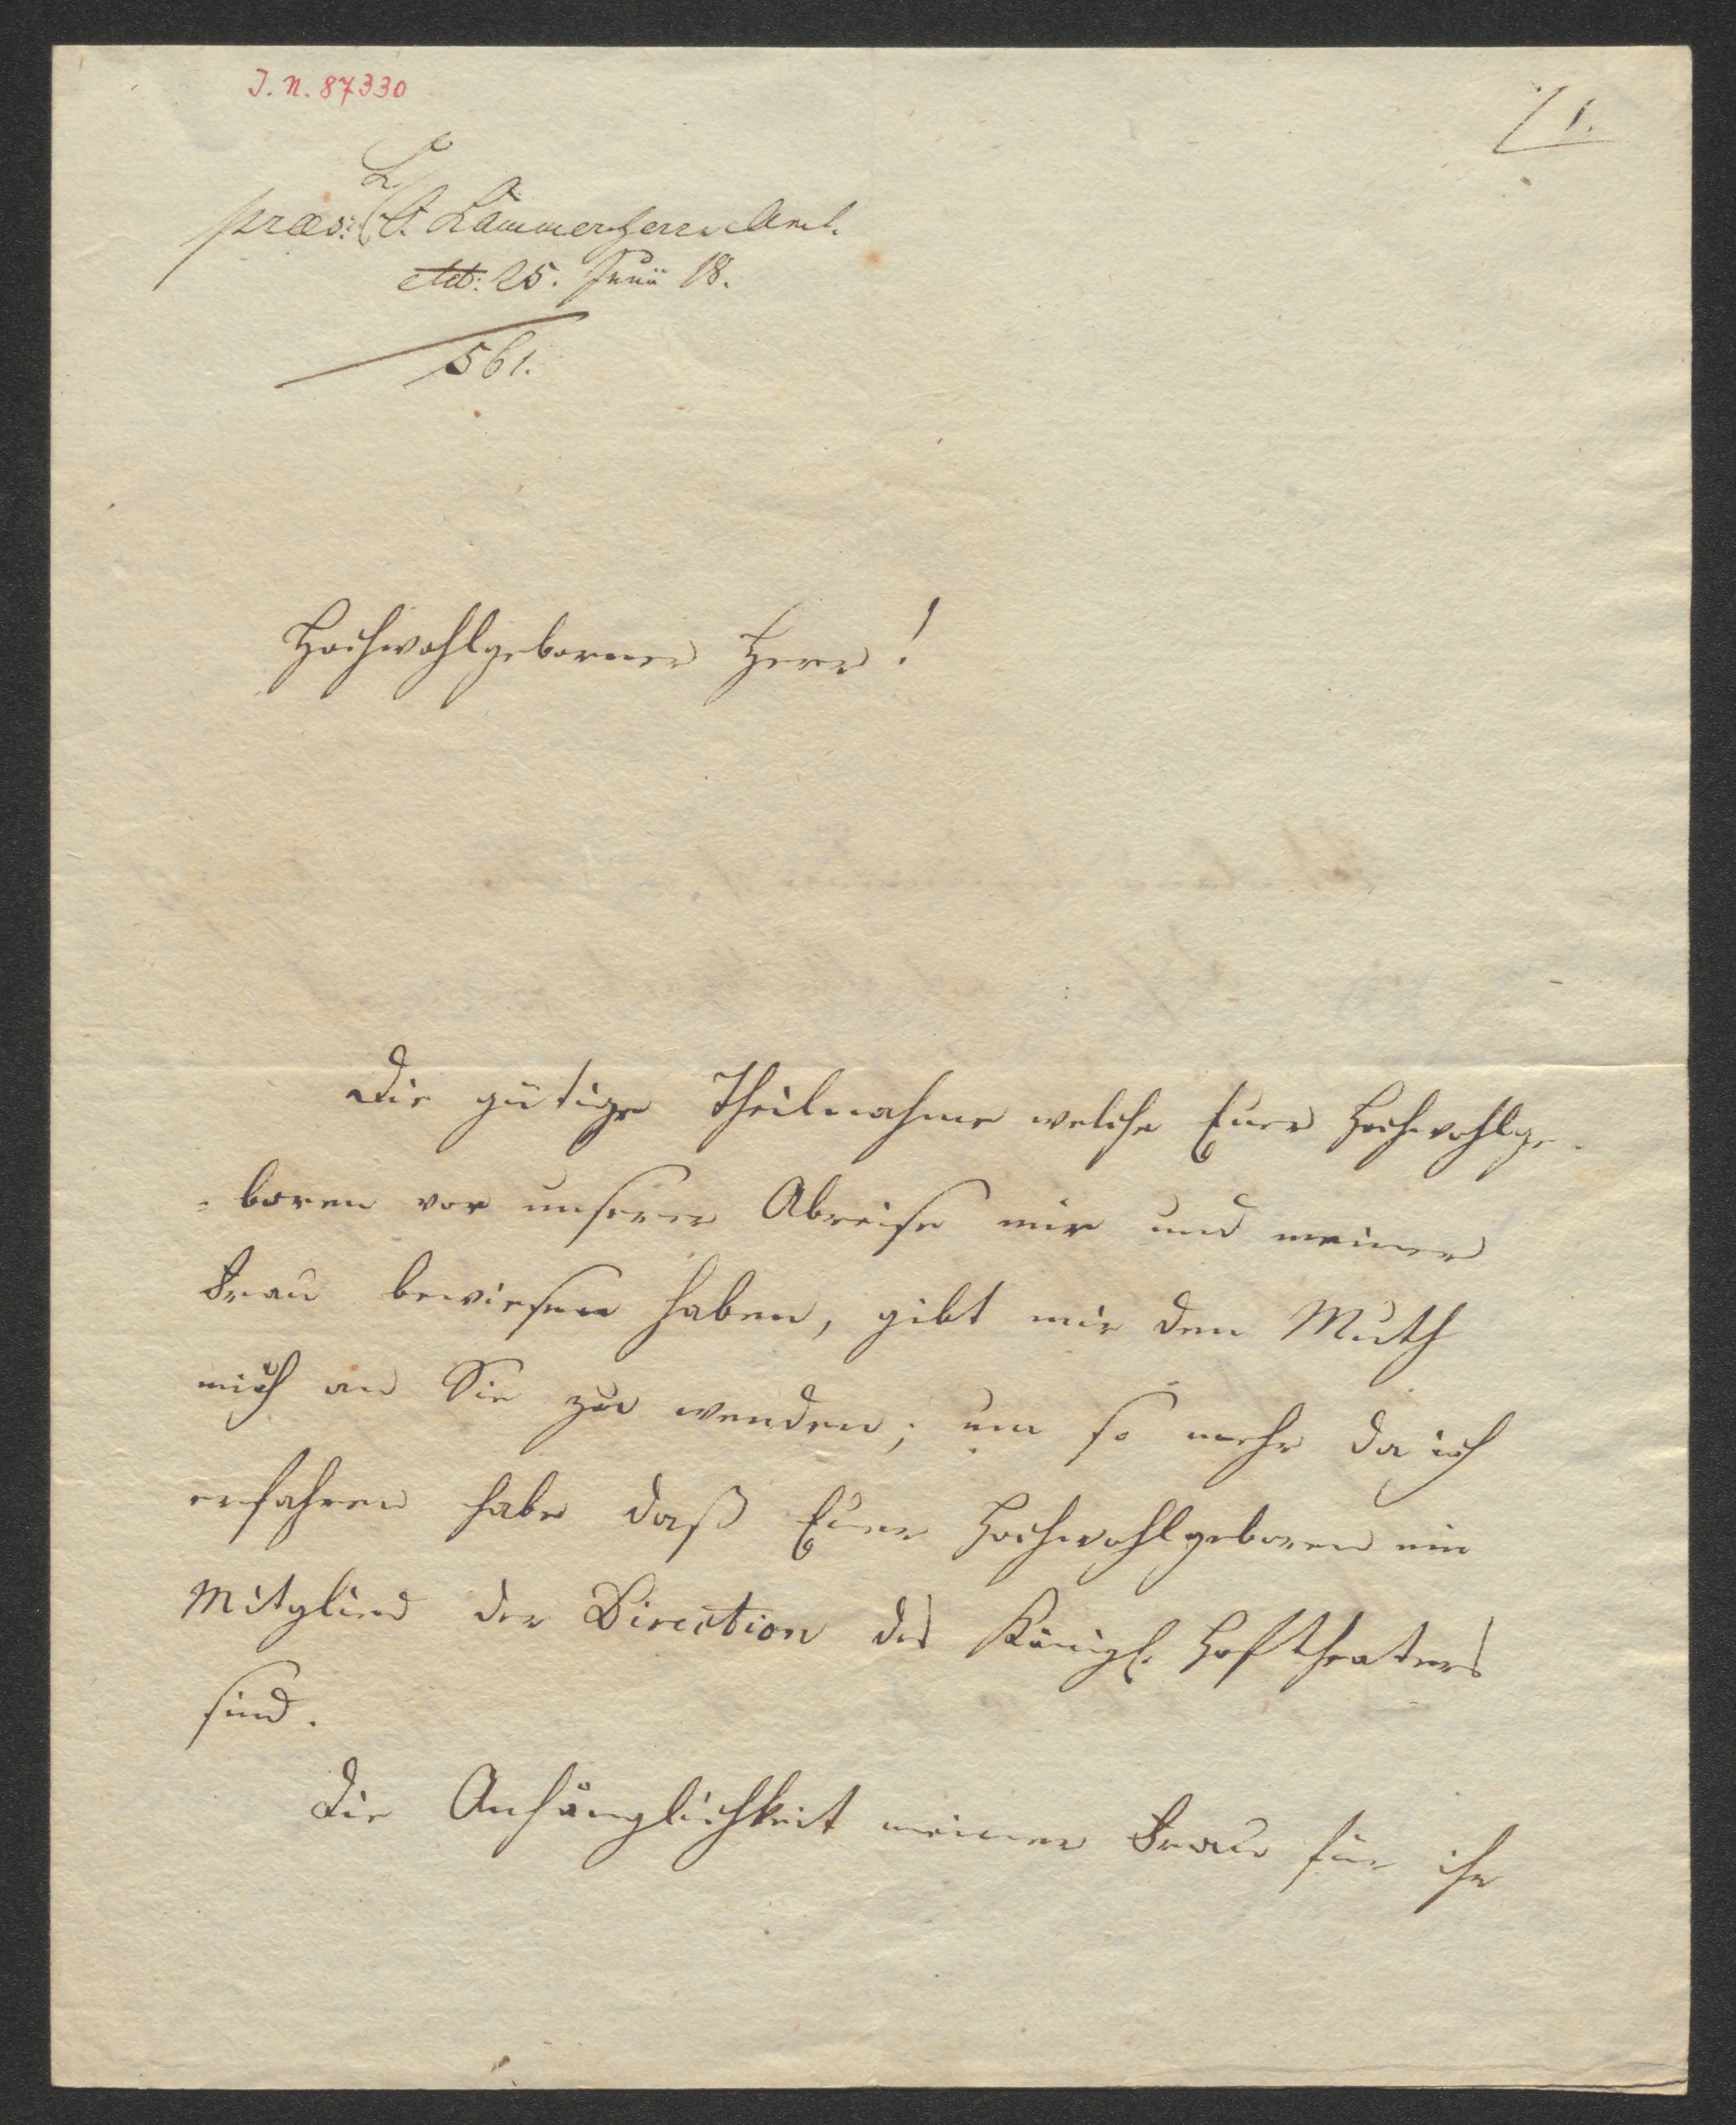 J. N. 87330
1.
præs:
25. Junii 18.
561.
Hochwohlgeborner Herr!
Die gütige Theilnahme welche Euer Hochwohlge-
=boren vor unserer Abreise mir und meiner
Frau bewiesen haben, gibt mir den Muth
mich an Sie zu wenden; um so mehr da ich
erfahren habe daß Euer Hochwohlgeboren ein
Mitglied der Direction des Königl. Hoftheaters
sind.
Die Anhänglichkeit meiner Frau für ihr